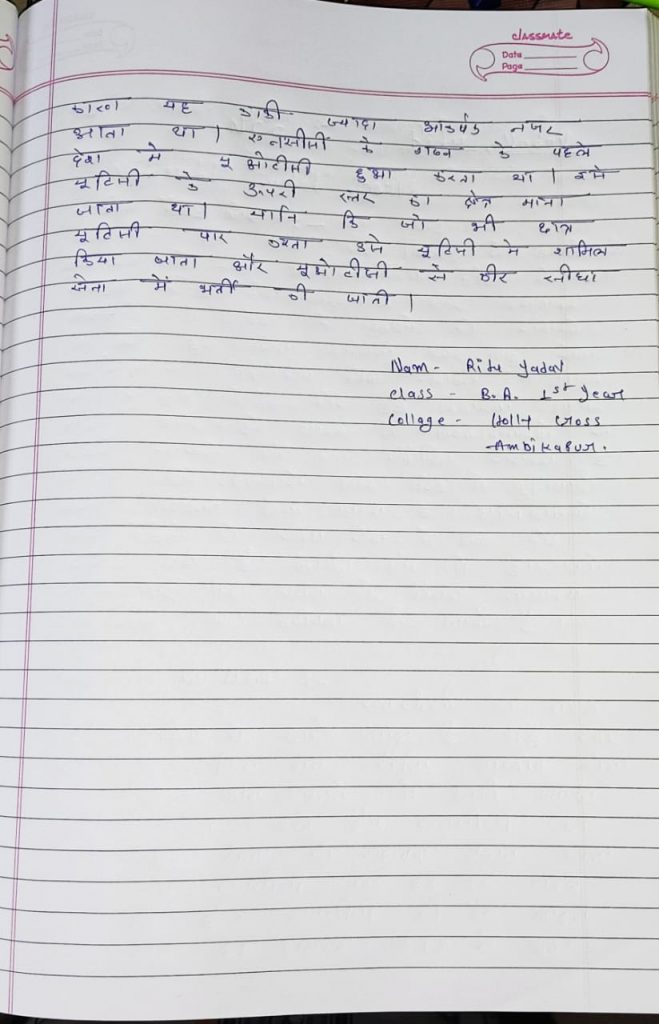 classmate
Date
Page
कारण यह काफी ज्यादा आकर्षक नजर
आता था। एनसीसी के गठन के पहले
देश मे यूओटीसी हुआ करता था। इसे
यूटिसी के ऊपरी स्तर का क्षेत्र माना
जाता था। यानि कि जो भी छात्र
यूटिसी पार करता उसे यूटिसी मे शामिल
किया जाता और यूओटीसी से फीर सीधा
सेना में भर्ती की जाती।
Nam- Ritu Yadav
Class - B.A. 1st Year
Collage - Holly Cross
Ambikapur.